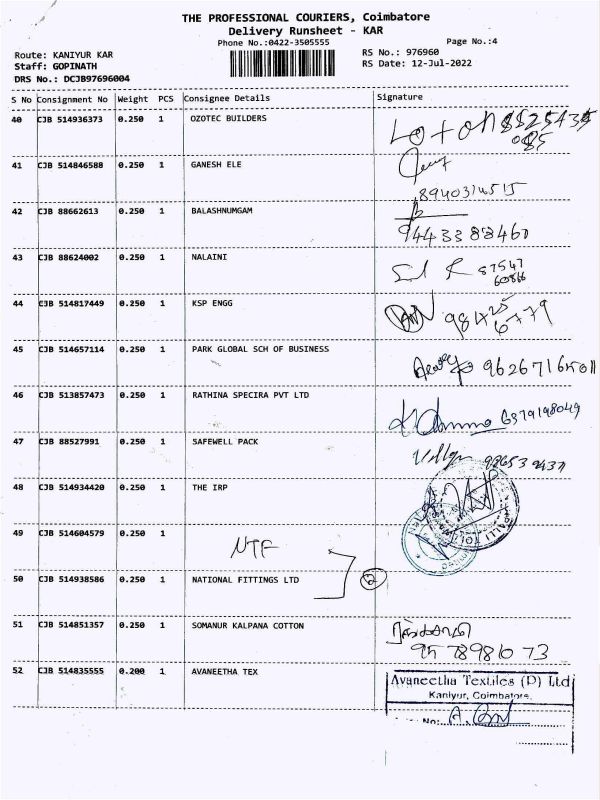 THE PROFESSIONAL COURIERS, Coimbatore
Delivery Runsheet - KAR
Phone No.:0422-3505555
Page No.:4
Route: KANIYUR KAR
RS No.: 976960
Staff: GOPINATH
RS Date: 12-Jul-2022
DRS No.: DCJB97696004
S No Consignment No Weight PCS Consignee Details Signature
40 CJB 514936373 0.250 1 OZOTEC BUILDERS
41 CJB 514846588 0.250 1 GANESH ELE
8940314515
42 CJB 88662613 0.250 1 BALASHNUMGAM
9443388460
43 CJB 88624002 0.250 1 NALAINI
87547
60866
44 CJB 514817449 0.250 1 KSP ENGG
98425
6779
45 CJB 514657114 0.250 1 PARK GLOBAL SCH OF BUSINESS
46 CJB 513857473 0.250 1 RATHINA SPECIRA PVT LTD
6379198049
47 CJB 88527991 0.250 1 SAFEWELL PACK
48 CJB 514934420 0.250 1 THE IRP
49 CJB 514604579 0.250 1
NTF
50 CJB 514938586 0.250 1 NATIONAL FITTINGS LTD
2
51 CJB 514851357 0.250 1 SOMANUR KALPANA COTTON
9578981073
52 CJB 514835555 0.200 1 AVANEETHA TEX
Avaneetha Textiles (P) Ltd
Kaniyur, Coimbatore.
No: